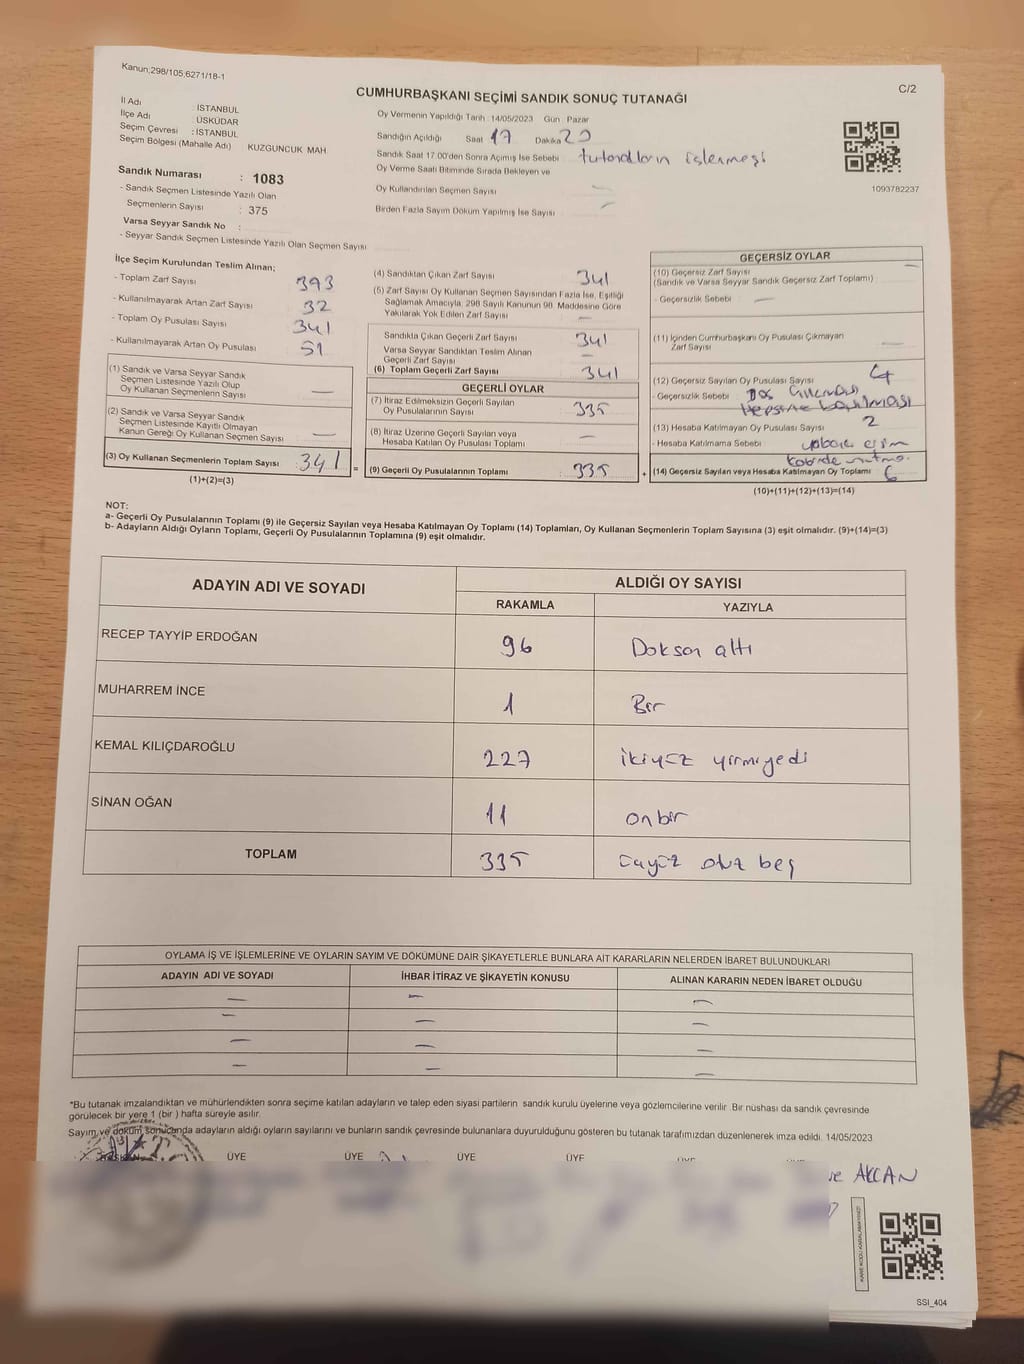 Kanun;298/105,6271/18-1
C/2
CUMHURBAŞKANI SEÇİMİ SANDIK SONUÇ TUTANAĞI
İl Adı : İSTANBUL
İlçe Adı : ÜSKÜDAR
Seçim Çevresi : İSTANBUL
Seçim Bölgesi (Mahalle Adı) KUZGUNCUK MAH.
Sandık Numarası : 1083
- Sandık Seçmen Listesinde Yazılı Olan
Seçmenlerin Sayısı : 375
Varsa Seyyar Sandık No :
- Seyyar Sandık Seçmen Listesinde Yazılı Olan Seçmen Sayısı
Oy Vermenin Yapıldığı Tarih : 14/05/2023 Gün : Pazar
Sandığın Açıldığı Saat 17 Dakika 20
Sandık Saat 17.00'den Sonra Açımış İse Sebebi tutanakların işlenmesi
Oy Verme Saati Bitiminde Sırada Bekleyen ve
Oy Kullandırılan Seçmen Sayısı —
Birden Fazla Sayım Döküm Yapılmış İse Sayısı —
1093782237
İlçe Seçim Kurulundan Teslim Alınan;
- Toplam Zarf Sayısı 393
- Kullanılmayarak Artan Zarf Sayısı 32
- Toplam Oy Pusulası Sayısı 341
- Kullanılmayarak Artan Oy Pusulası 51
(1) Sandık ve Varsa Seyyar Sandık
Seçmen Listesinde Yazılı Olup
Oy Kullanan Seçmenlerin Sayısı —
(2) Sandık ve Varsa Seyyar Sandık
Seçmen Listesinde Kayıtlı Olmayan
Kanun Gereği Oy Kullanan Seçmen Sayısı —
(3) Oy Kullanan Seçmenlerin Toplam Sayısı 341 =
(1)+(2)=(3)
(4) Sandıktan Çıkan Zarf Sayısı 341
(5) Zarf Sayısı Oy Kullanan Seçmen Sayısından Fazla İse, Eşitliği
Sağlamak Amacıyla, 298 Sayılı Kanunun 98. Maddesine Göre
Yakılarak Yok Edilen Zarf Sayısı —
Sandıkta Çıkan Geçerli Zarf Sayısı 341
Varsa Seyyar Sandıktan Teslim Alınan
Geçerli Zarf Sayısı —
(6) Toplam Geçerli Zarf Sayısı 341
GEÇERLİ OYLAR
(7) İtiraz Edilmeksizin Geçerli Sayılan
Oy Pusulalarının Sayısı 335
(8) İtiraz Üzerine Geçerli Sayılan veya
Hesaba Katılan Oy Pusulası Toplamı —
(9) Geçerli Oy Pusulalarının Toplamı 335 +
GEÇERSİZ OYLAR
(10) Geçersiz Zarf Sayısı —
(Sandık ve Varsa Seyyar Sandık Geçersiz Zarf Toplamı)
- Geçersizlik Sebebi —
(11) İçinden Cumhurbaşkanı Oy Pusulası Çıkmayan
Zarf Sayısı —
(12) Geçersiz Sayılan Oy Pusulası Sayısı 4
- Geçersizlik Sebebi Boş Çıkması
Hepsine basılması
(13) Hesaba Katılmayan Oy Pusulası Sayısı 2
- Hesaba Katılmama Sebebi
kabinde
(14) Geçersiz Sayılan veya Hesaba Katılmayan Oy Toplamı 6
(10)+(11)+(12)+(13)=(14)
NOT:
a- Geçerli Oy Pusulalarının Toplamı (9) ile Geçersiz Sayılan veya Hesaba Katılmayan Oy Toplamı (14) Toplamları, Oy Kullanan Seçmenlerin Toplam Sayısına (3) eşit olmalıdır. (9)+(14)=(3)
b- Adayların Aldığı Oyların Toplamı, Geçerli Oy Pusulalarının Toplamına (9) eşit olmalıdır.
ADAYIN ADI VE SOYADI ALDIĞI OY SAYISI
RAKAMLA YAZIYLA
RECEP TAYYİP ERDOĞAN 96 Doksan altı
MUHARREM İNCE 1 Bir
KEMAL KILIÇDAROĞLU 227 ikiyüz yirmiyedi
SİNAN OĞAN 11 onbir
TOPLAM 335 üçyüz otuz beş
OYLAMA İŞ VE İŞLEMLERİNE VE OYLARIN SAYIM VE DÖKÜMÜNE DAİR ŞİKAYETLERLE BUNLARA AİT KARARLARIN NELERDEN İBARET BULUNDUKLARI
ADAYIN ADI VE SOYADI İHBAR İTİRAZ VE ŞİKAYETİN KONUSU ALINAN KARARIN NEDEN İBARET OLDUĞU
— — —
— — —
— — —
— — —
*Bu tutanak imzalandıktan ve mühürlendikten sonra seçime katılan adayların ve talep eden siyasi partilerin sandık kurulu üyelerine veya gözlemcilerine verilir. Bir nüshası da sandık çevresinde
görülecek bir yere 1 (bir ) hafta süreyle asılır.
Sayım ve döküm sonucunda adayların aldığı oyların sayılarını ve bunların sandık çevresinde bulunanlara duyurulduğunu gösteren bu tutanak tarafımızdan düzenlenerek imza edildi. 14/05/2023
BAŞKAN ÜYE ÜYE ÜYE ÜYE
AKCAN
SSI_404